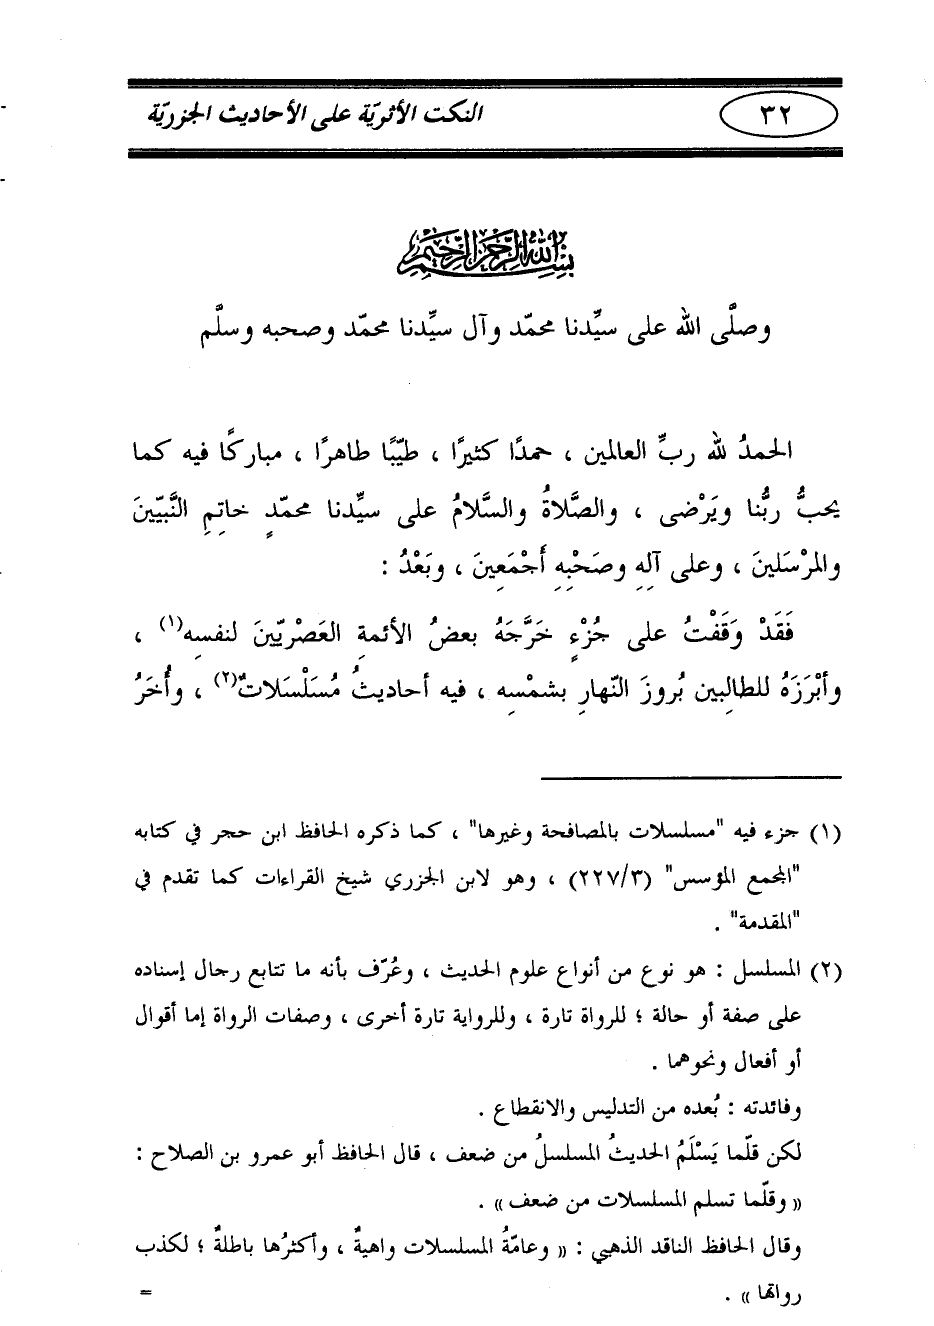 ٣٢
النكت الأثريّة على الأحاديث الجزريّة
بسم الله الرحمن الرحيم
وصلَّى الله على سيِّدنا محمّد وآل سيِّدنا محمّد وصحبه وسلَّم
الحمدُ لله ربِّ العالمين ، حمدًا كثيرًا ، طيّبًا طاهرًا ، مباركًا فيه كما
يحبُّ ربُّنا ويَرْضى ، والصَّلاةُ والسَّلامُ على سيِّدنا محمّدٍ خاتِمِ النَّبيّينَ
والمرْسَلينَ ، وعلى آلِهِ وصَحْبِهِ أَجْمَعِينَ ، وبَعْدُ :
فَقَدْ وَقَفْتُ على جُزْءٍ خَرَّجَهُ بعضُ الأئمةِ العَصْريّينَ لنفسِه(١) ،
وأبْرَزَهُ للطالِبين بُروزَ النّهارِ بشمْسِهِ ، فيه أحاديثُ مُسَلْسَلاتٌ(٢) ، وأُخَرُ
(١) جزء فيه "مسلسلات بالمصافحة وغيرها" ، كما ذكره الحافظ ابن حجر في كتابه
"المجمع المؤسس" (٢٢٧/٣) ، وهو لابن الجزري شيخ القراءات كما تقدم في
"المقدمة" .
(٢) المسلسل : هو نوع من أنواع علوم الحديث ، وعُرّف بأنه ما تتابع رجال إسناده
على صفة أو حالة ؛ للرواة تارة ، وللرواية تارة أخرى ، وصفات الرواة إما أقوال
أو أفعال ونحوهما .
وفائدته : بُعده من التدليس والانقطاع .
لكن قلّما يَسْلَمُ الحديثُ المسلسلُ من ضعف ، قال الحافظ أبو عمرو بن الصلاح :
« وقلّما تسلم المسلسلات من ضعف » .
وقال الحافظ الناقد الذهبي : « وعامّةُ المسلسلات واهيةٌ ، وأكثرُها باطلةٌ ؛ لكذب
رواتها » .
=